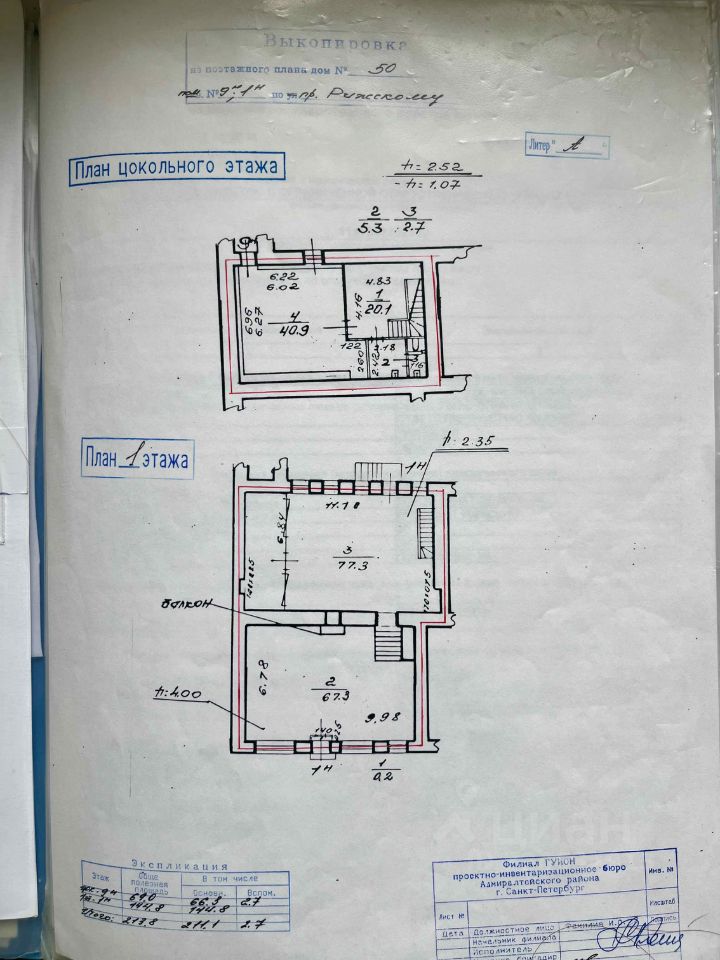 Выкопировка
из поэтажного плана дом № 50
пом. № 9н, 1н по пр. Рижскому
Литер " А "
План цокольного этажа
h = 2.52
h = 1.07
2 3
5.3 2.7
6.22
6.02
6.96
6.27
4
40.9
4.83
4.16
1
20.1
1.22
2.60
2.42
2.18
2
План 1 этажа
h = 2.35
1Н
11.18
6.84
3
77.3
балкон
6.78
h = 4.00
2
67.3
9.98
1.40
1Н
1
0.2
Экспликация
Этаж Обще полезная площадь В том числе
Основн. Вспом.
цок. 9н 69.0 66.3 2.7
1эт. 1н 144.8 144.8
Итого: 213.8 211.1 2.7
циан
Филиал ГУИОН
проектно-инвентаризационное бюро
Адмиралтейского района
г. Санкт-Петербург
Инв. №
Масштаб
Лист №
Дата Должностное лицо Фамилия и.о. Подпись
Начальник филиала
Исполнитель
бригадир